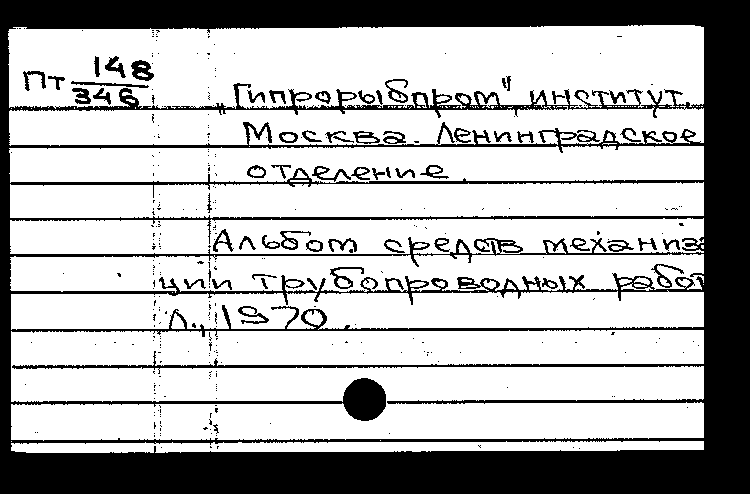 Пт 148
346
„Гипрорыбпром", институт.
Москва. Ленинградское
отделение.
Альбом средств механиза
ции трубопроводных работ
Л., 1970.